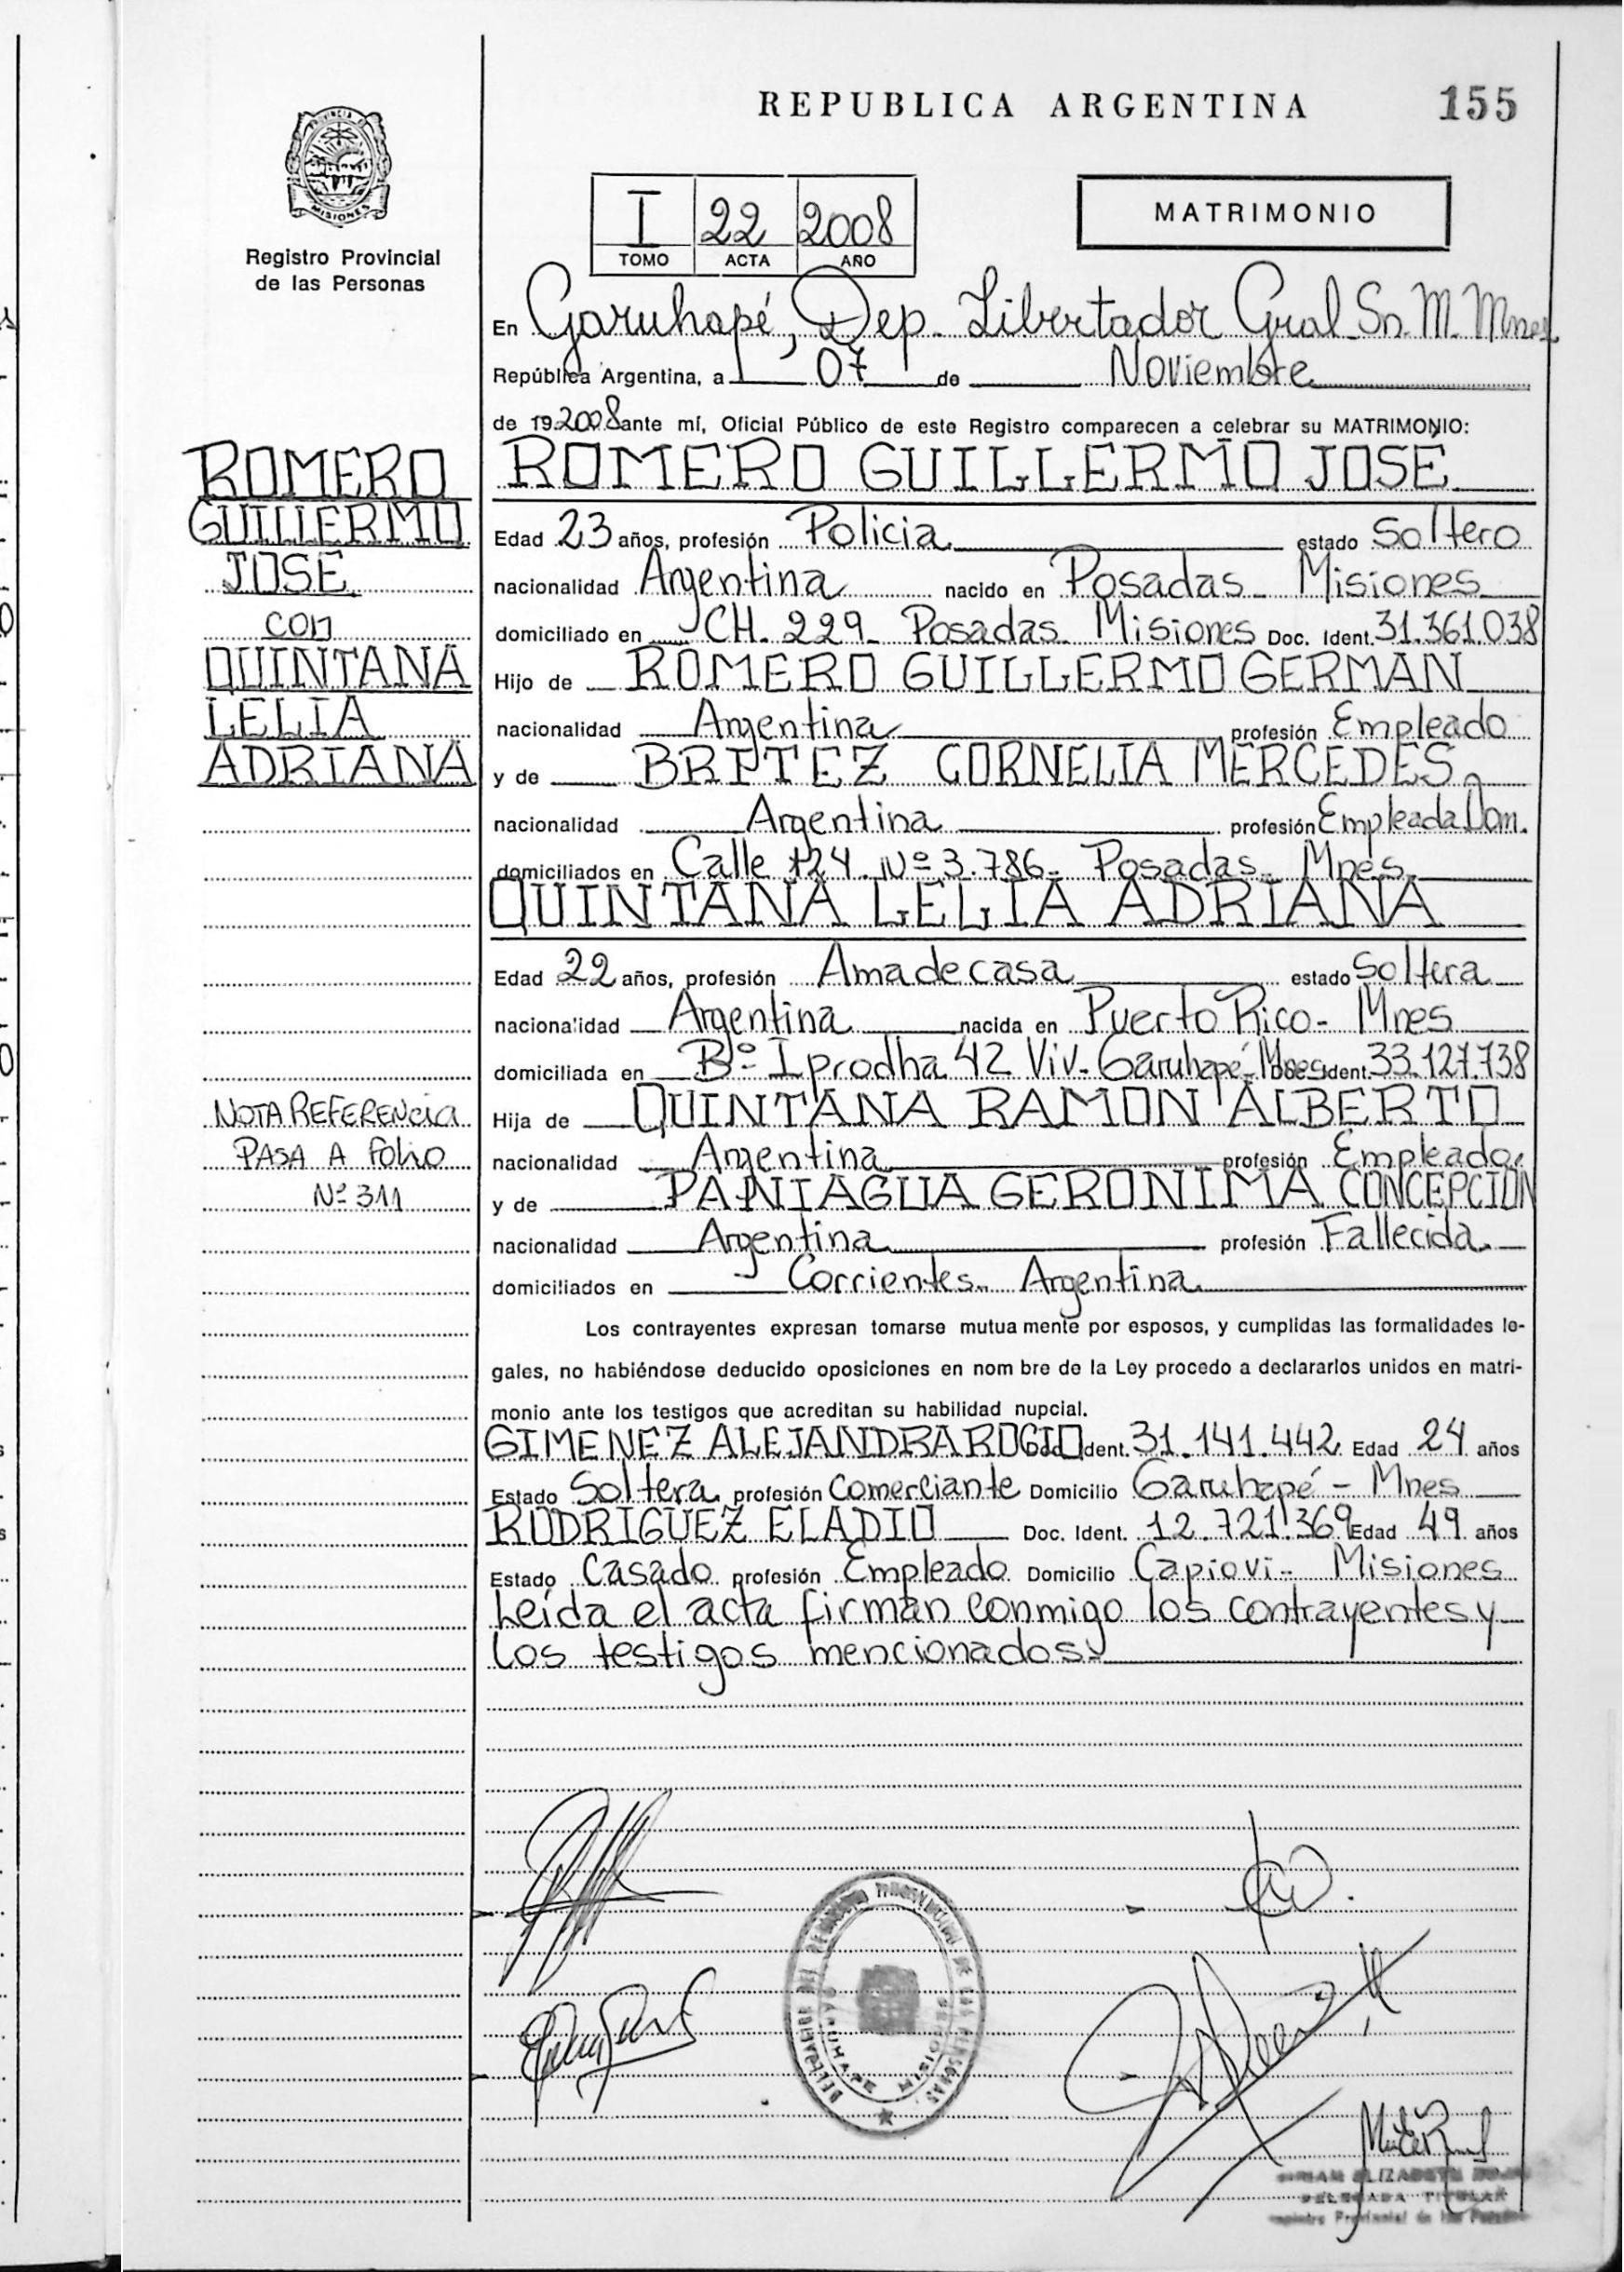 REPUBLICA ARGENTINA
155
PROVINCIA DE MISIONES
Registro Provincial
de las Personas
I 22 2008
TOMO ACTA AÑO
MATRIMONIO
En Garuhapé, Dep. Libertador Gral Sn. M. Mnes
República Argentina, a 07 de Noviembre
de 19 2008 ante mí, Oficial Público de este Registro comparecen a celebrar su MATRIMONIO:
ROMERO
GUILLERMO
JOSE
CON
QUINTANA
LELIA
ADRIANA
NOTA REFERENCIA
PASA A FOLIO
Nº 311
ROMERO GUILLERMO JOSE
Edad 23 años, profesión Policia estado Soltero
nacionalidad Argentina nacido en Posadas - Misiones
domiciliado en CH. 229 - Posadas - Misiones Doc. Ident. 31.361.038
Hijo de ROMERO GUILLERMO GERMAN
nacionalidad Argentina profesión Empleado
y de BRITEZ CORNELIA MERCEDES
nacionalidad Argentina profesión Empleada Dom.
domiciliados en Calle 124. Nº 3.786 - Posadas - Mnes.
QUINTANA LELIA ADRIANA
Edad 22 años, profesión Ama de casa estado Soltera
nacionalidad Argentina nacida en Puerto Rico - Mnes
domiciliada en Bº Iprodha 42 Viv. Garuhapé - Mnes Doc. Ident. 33.127.738
Hija de QUINTANA RAMON ALBERTO
nacionalidad Argentina profesión Empleado.
y de PANIAGUA GERONIMA CONCEPCION
nacionalidad Argentina profesión Fallecida.
domiciliados en Corrientes - Argentina
Los contrayentes expresan tomarse mutua mente por esposos, y cumplidas las formalidades le-
gales, no habiéndose deducido oposiciones en nom bre de la Ley procedo a declararlos unidos en matri-
monio ante los testigos que acreditan su habilidad nupcial.
GIMENEZ ALEJANDRA ROCIO Ident. 31.141.442 Edad 24 años
Estado Soltera profesión Comerciante Domicilio Garuhapé - Mnes
RODRIGUEZ ELADIO Doc. Ident. 12.721.369 Edad 49 años
Estado Casado profesión Empleado Domicilio Capiovi - Misiones
Leída el acta firman conmigo los contrayentes y
los testigos mencionados.
DELEGACION DEL REGISTRO PROVINCIAL DE LAS PERSONAS
GARUHAPE MISIONES
ELIZABETH
DELEGADA TITULAR
Registro Provincial de las Personas